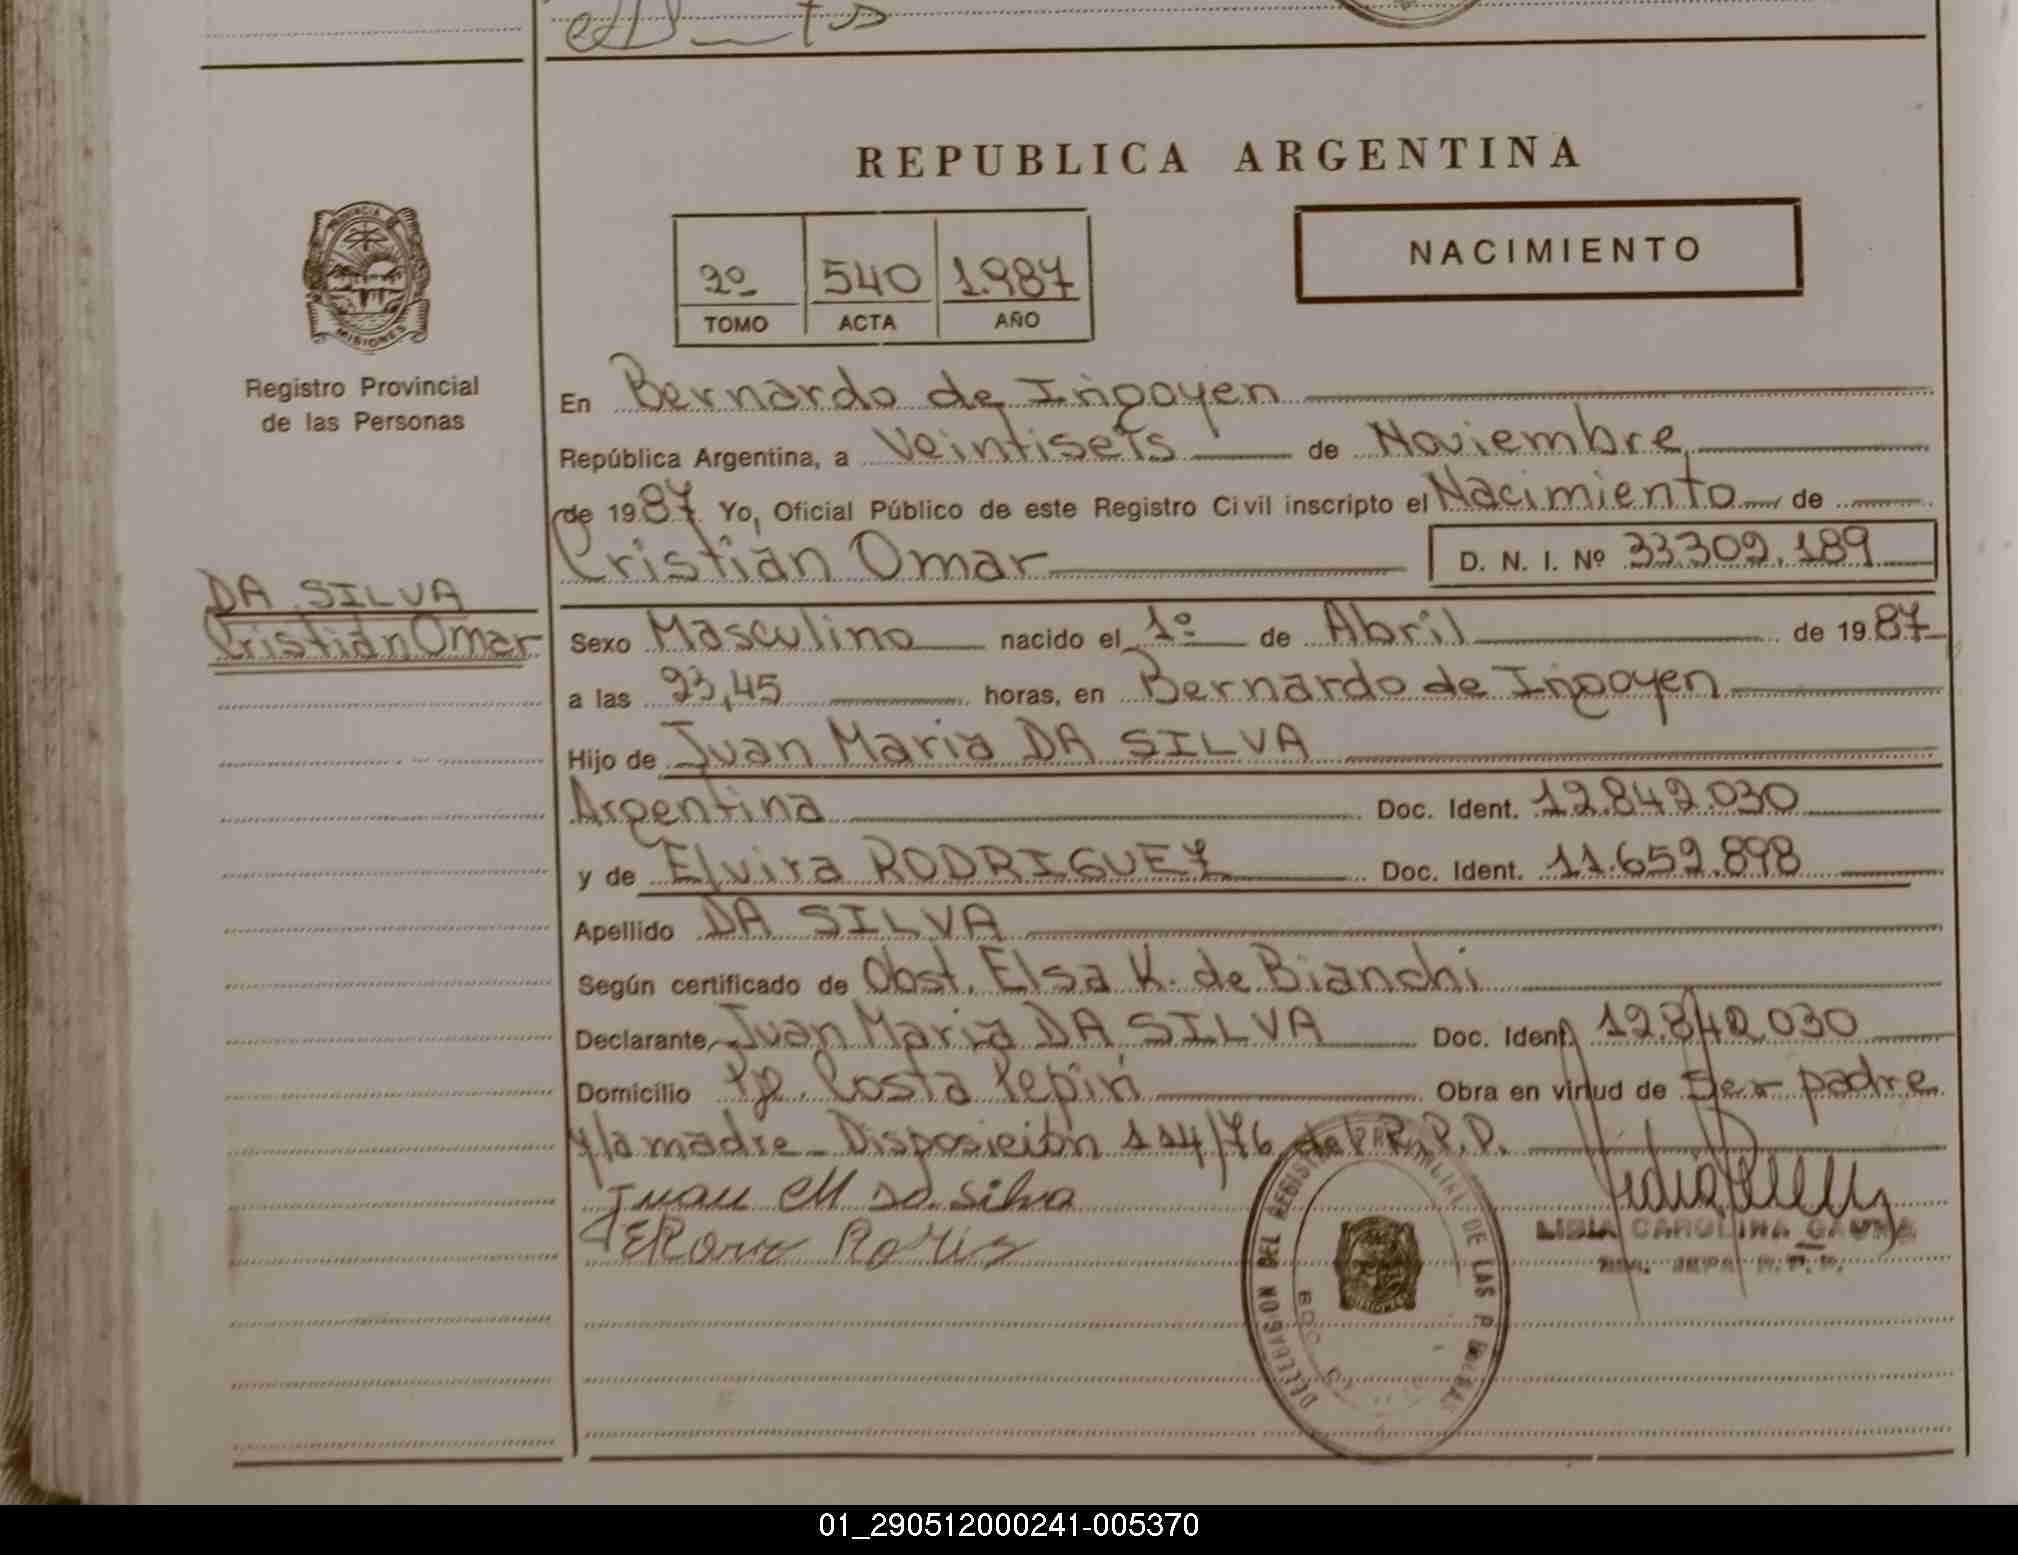 REPUBLICA ARGENTINA
PROVINCIA
MISIONES
Registro Provincial
de las Personas
2º 540 1.987
TOMO ACTA AÑO
NACIMIENTO
En Bernardo de Irigoyen
República Argentina, a Veintiseis de Noviembre
de 1987 Yo, Oficial Público de este Registro Civil inscripto el Nacimiento de
Cristián Omar
D. N. I. Nº 33.309.189
DA SILVA
Cristián Omar
Sexo Masculino nacido el 1º de Abril de 1987
a las 23,45 horas, en Bernardo de Irigoyen
Hijo de Juan Maria DA SILVA
Argentina Doc. Ident. 12.842.030
y de Elvira RODRIGUEZ Doc. Ident. 11.659.898
Apellido DA SILVA
Según certificado de Obst. Elsa K. de Bianchi
Declarante Juan Maria DA SILVA Doc. Ident. 12.842.030
Domicilio Pje. Costa Pepirí Obra en virtud de Ser padre
y la madre - Disposición 114/76 del R.P.P.
Juan M Da Silva
LIDIA CAROLINA GAUNA
R.P.P.
DELEGACION DEL REGISTRO PROVINCIAL DE LAS PERSONAS
MISIONES
01_290512000241-005370